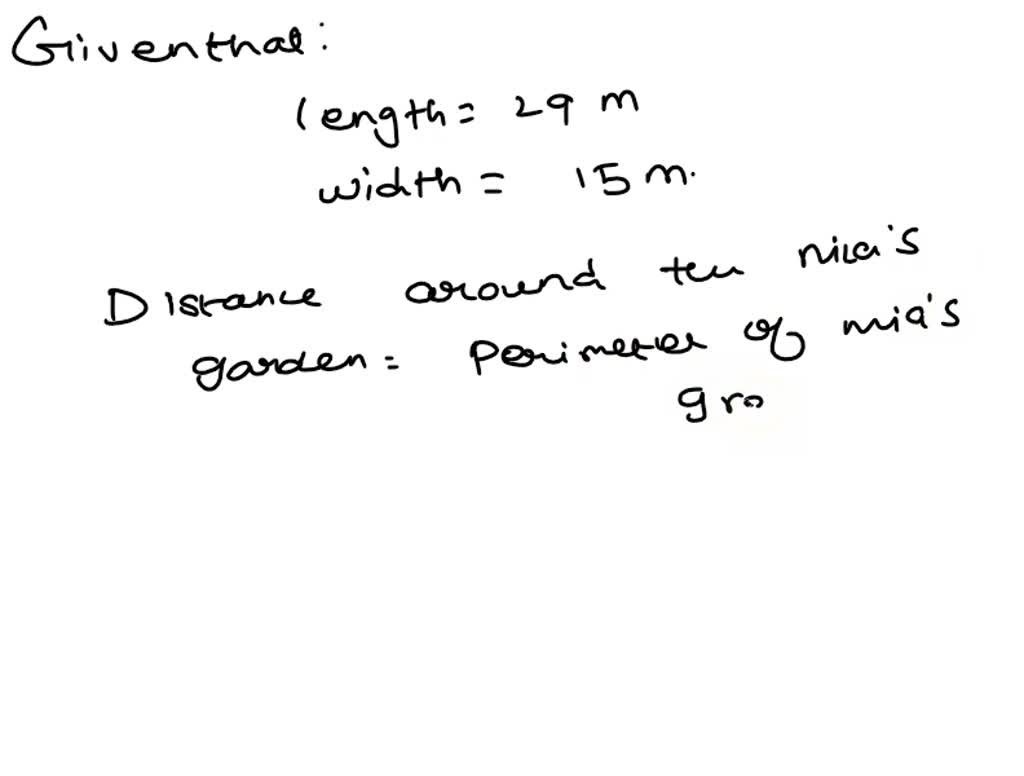 Giventhat:
length = 29 m
width = 15 m.
Distance around the mia's
garden = Perimeter of mia's
gra